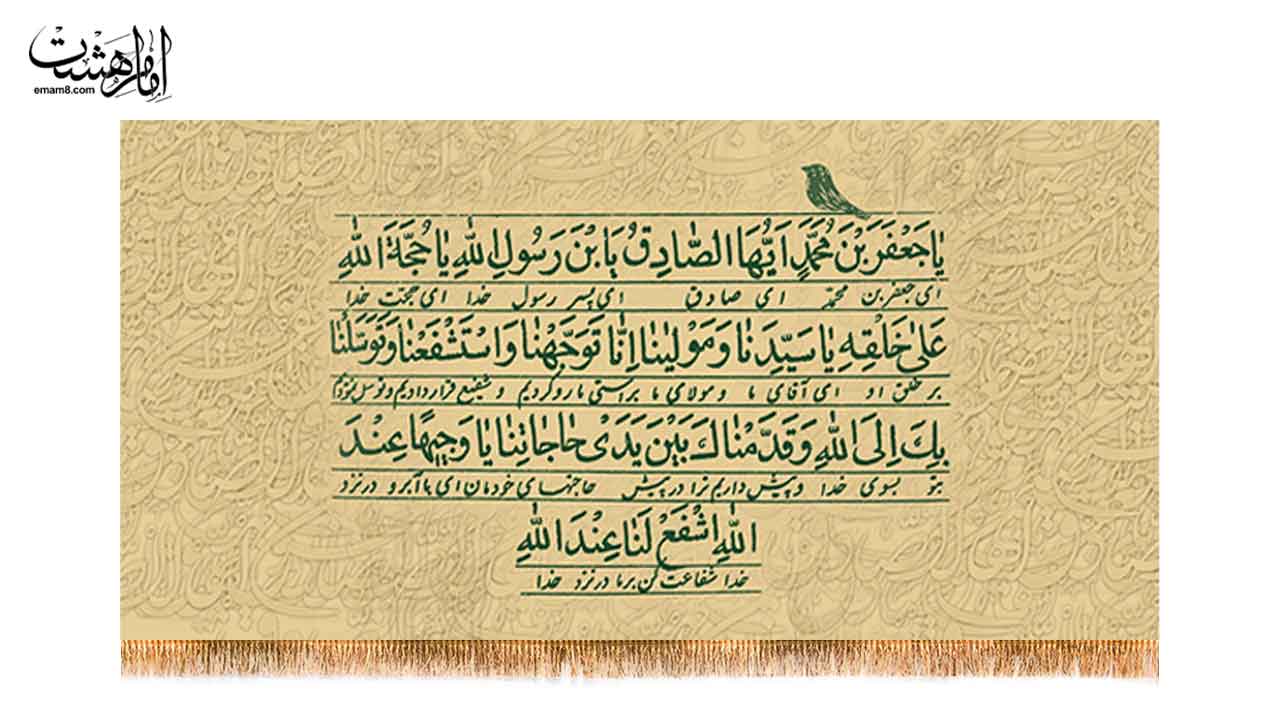 امام هشت
emam8.com
يٰا جَعْفَرَ بْنَ مُحَمَّدٍ اَيُّهَا الصّٰادِقُ يَا بْنَ رَسُولِ اللّٰهِ يٰا حُجَّةَ اللّٰهِ
ای جعفر بن محمّد ای صادق ای پسر رسول خدا ای حجّت خدا
عَلىٰ خَلْقِهِ يٰا سَيِّدَنٰا وَ مَوْلٰينٰا اِنّٰا تَوَجَّهْنٰا وَ اسْتَشْفَعْنٰا وَ تَوَسَّلْنٰا
بر خلق او ای آقای ما و مولای ما براستی ما رو کردیم و شفیع قرار دادیم و توسل نمودیم
بِكَ اِلَى اللّٰهِ وَ قَدَّمْنٰاكَ بَيْنَ يَدَىْ حٰاجٰاتِنٰا يٰا وَجِيهًا عِنْدَ
بتو بسوی خدا و پیش داریم ترا در پیش حاجتهای خودمان ای با آبرو در نزد
اللّٰهِ اشْفَعْ لَنٰا عِنْدَ اللّٰهِ
خدا شفاعت کن بر ما در نزد خدا